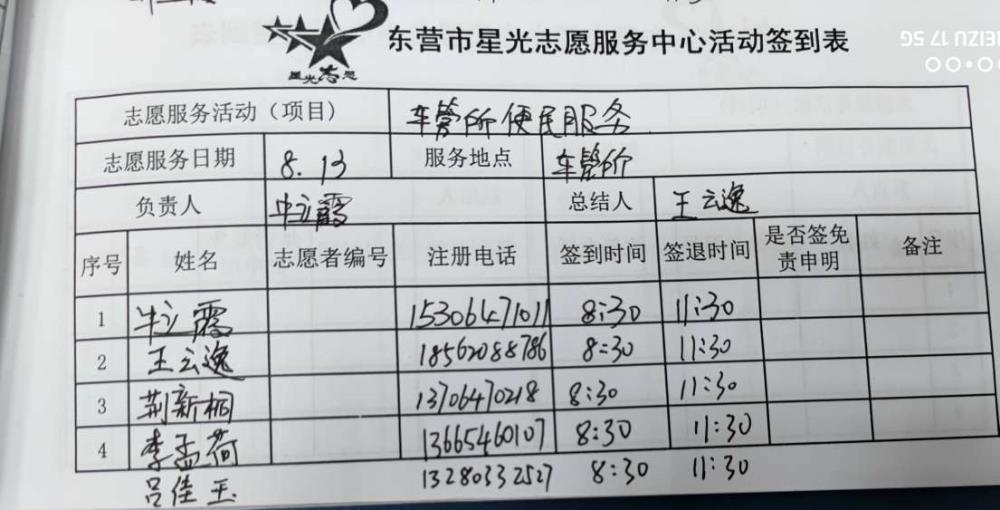 星光志愿
东营市星光志愿服务中心活动签到表
MEIZU 17 5G
志愿服务活动（项目） 车管所便民服务
志愿服务日期 8.13 服务地点 车管所
负责人 牛立霞 总结人 王云逸
序号 姓名 志愿者编号 注册电话 签到时间 签退时间 是否签免责申明 备注
1 牛立霞 15306471011 8:30 11:30
2 王云逸 18562088786 8:30 11:30
3 荆新桐 13706470218 8:30 11:30
4 李孟荷 13665460107 8:30 11:30
吕佳玉 13280332527 8:30 11:30